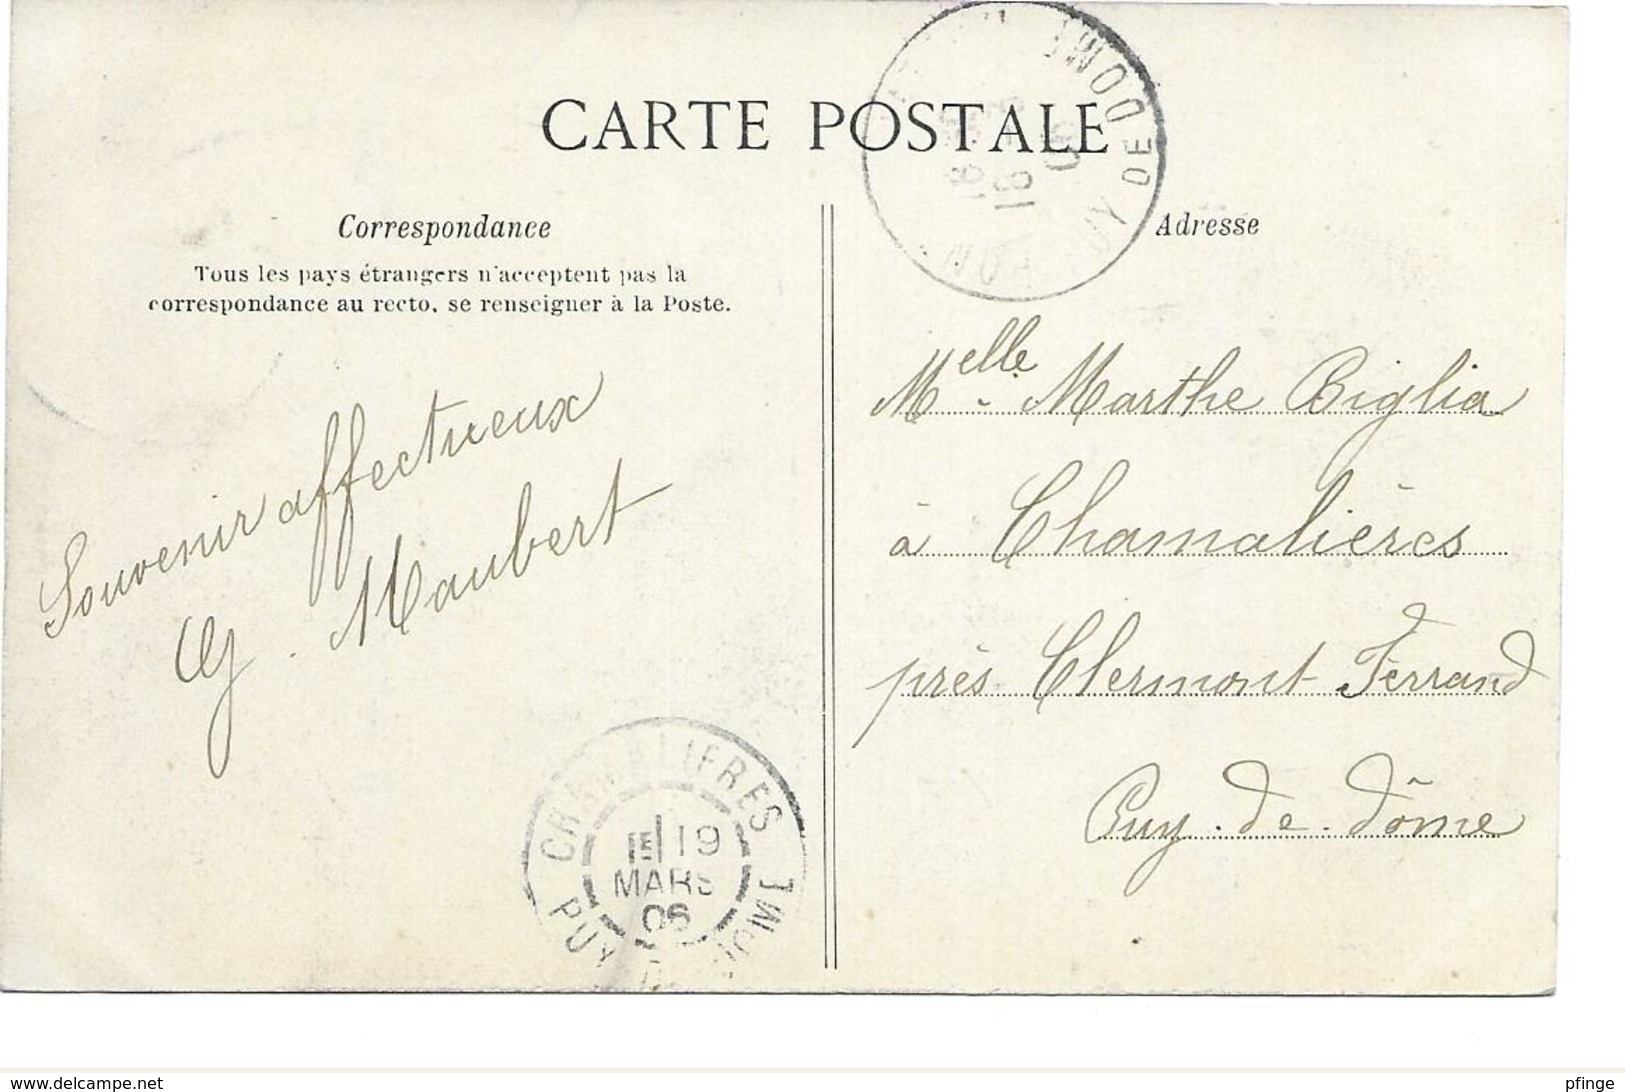 CARTE POSTALE
Correspondance
Tous les pays étrangers n'acceptent pas la
correspondance au recto, se renseigner à la Poste.
Adresse
DE DOME
18
Souvenir affectueux
G. Maubert
Melle Marthe Biglia
à Chamalières
près Clermont Ferrand
Puy-de-dôme
CHAMALIERES
19
MARS
06
PUY
www.delcampe.net
pfinge